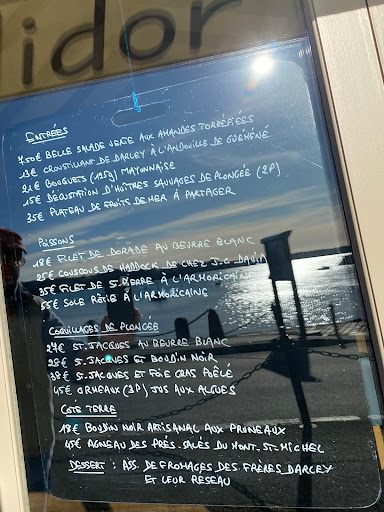 lidor
ENTRÉES
7.50€ BELLE SALADE VERTE AUX AMANDES TORRÉFIÉES
13€ CROUSTILLANT DE DARLEY À L'ANDOUILLE DE GUÉMÉNÉ
21€ BOUQUETS (125g) MAYONNAISE
15€ DÉGUSTATION D'HUÎTRES SAUVAGES DE PLONGÉE (2P)
35€ PLATEAU DE FRUITS DE MER À PARTAGER
POISSONS
18€ FILET DE DORADE AU BEURRE BLANC
25€ COUSCOUS DE HADDOCK DE CHEZ J.C DAVID
35€ FILET DE ST. PIERRE À L'ARMORICAINE
55€ SOLE RÔTIE À L'ARMORICAINE
COQUILLAGES DE PLONGÉE
27€ ST. JACQUES AU BEURRE BLANC
28€ ST. JACQUES ET BOUDIN NOIR
38€ ST. JACQUES ET FOIE GRAS POÊLÉ
45€ ORMEAUX (3P) JUS AUX ALGUES
COTE TERRE
18€ BOUDIN NOIR ARTISANAL AUX PRUNEAUX
45€ AGNEAU DES PRÉS-SALÉS DU MONT-ST-MICHEL
DESSERT : ASS. DE FROMAGES DES FRÈRES DARLEY
ET LEUR RESEAU